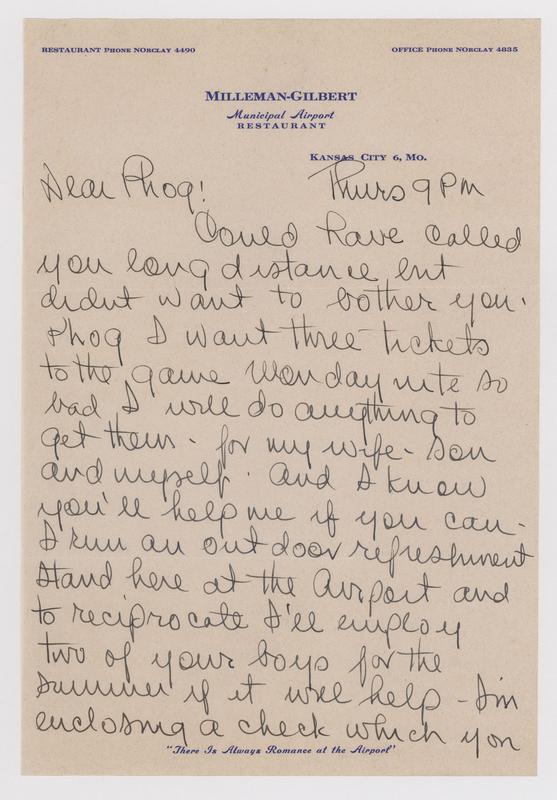 RESTAURANT PHONE NORCLAY 4490 OFFICE PHONE NORCLAY 4835
MILLEMAN-GILBERT
Municipal Airport
RESTAURANT
KANSAS CITY 6, MO.
Dear Phog! Thurs 9 PM
Could have called
you long distance but
didnt want to bother you.
Phog I want three tickets
to the game Monday nite so
bad I will do anything to
get them. for my wife - son
and myself. And I know
you'll help me if you can.
I run an outdoor refreshment
stand here at the Airport and
to reciprocate I'll employ
two of your boys for the
summer if it will help - I'm
enclosing a check which you
"There Is Always Romance at the Airport"